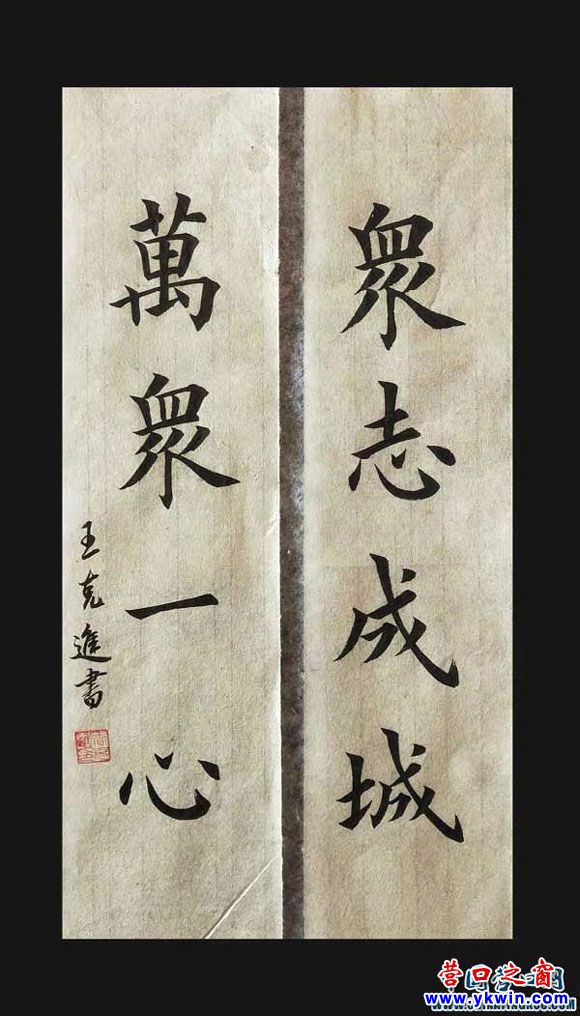 眾志成城
萬眾一心
王克進書
营口之窗
www.ykwin.com